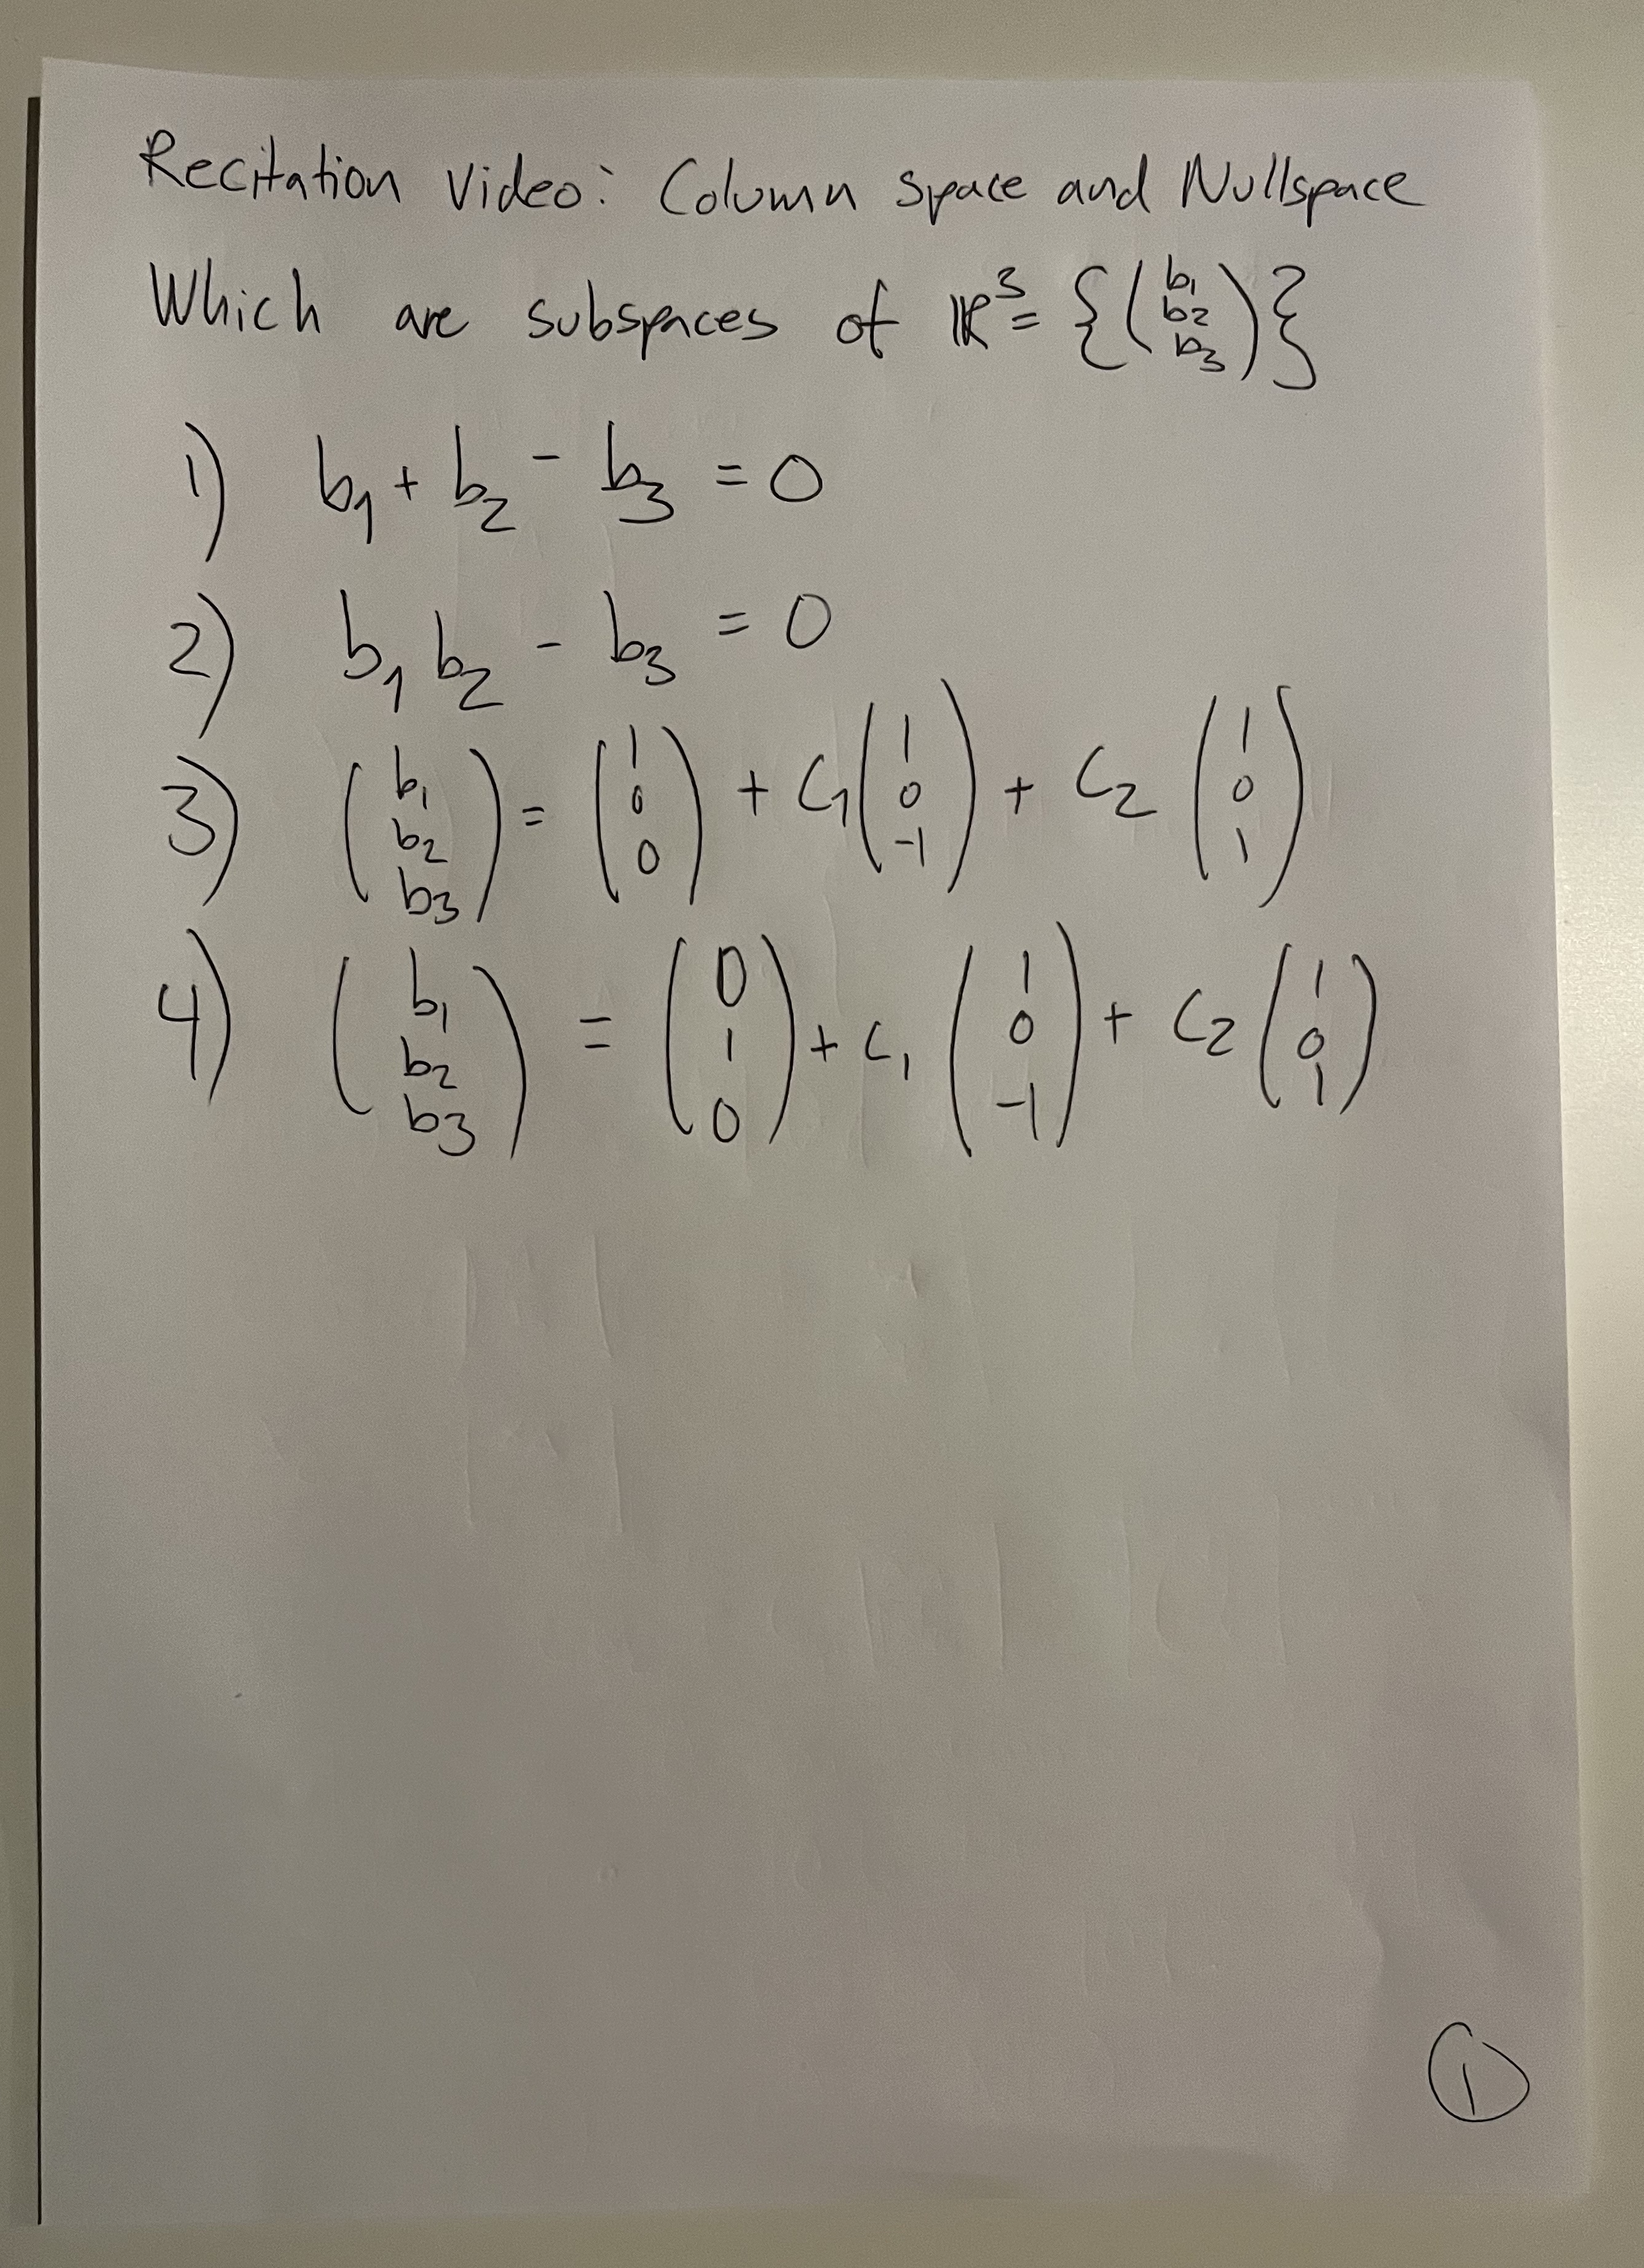 Recitation Video: Column space and Nullspace
Which are subspaces of ℝ³ = {(b₁ b₂ b₃)}
1) b₁ + b₂ - b₃ = 0
2) b₁ b₂ - b₃ = 0
3) (b₁ b₂ b₃) = (1 0 0) + C₁ (1 0 -1) + C₂ (1 0 1)
4) (b₁ b₂ b₃) = (0 1 0) + C₁ (1 0 -1) + C₂ (1 0 1)
1